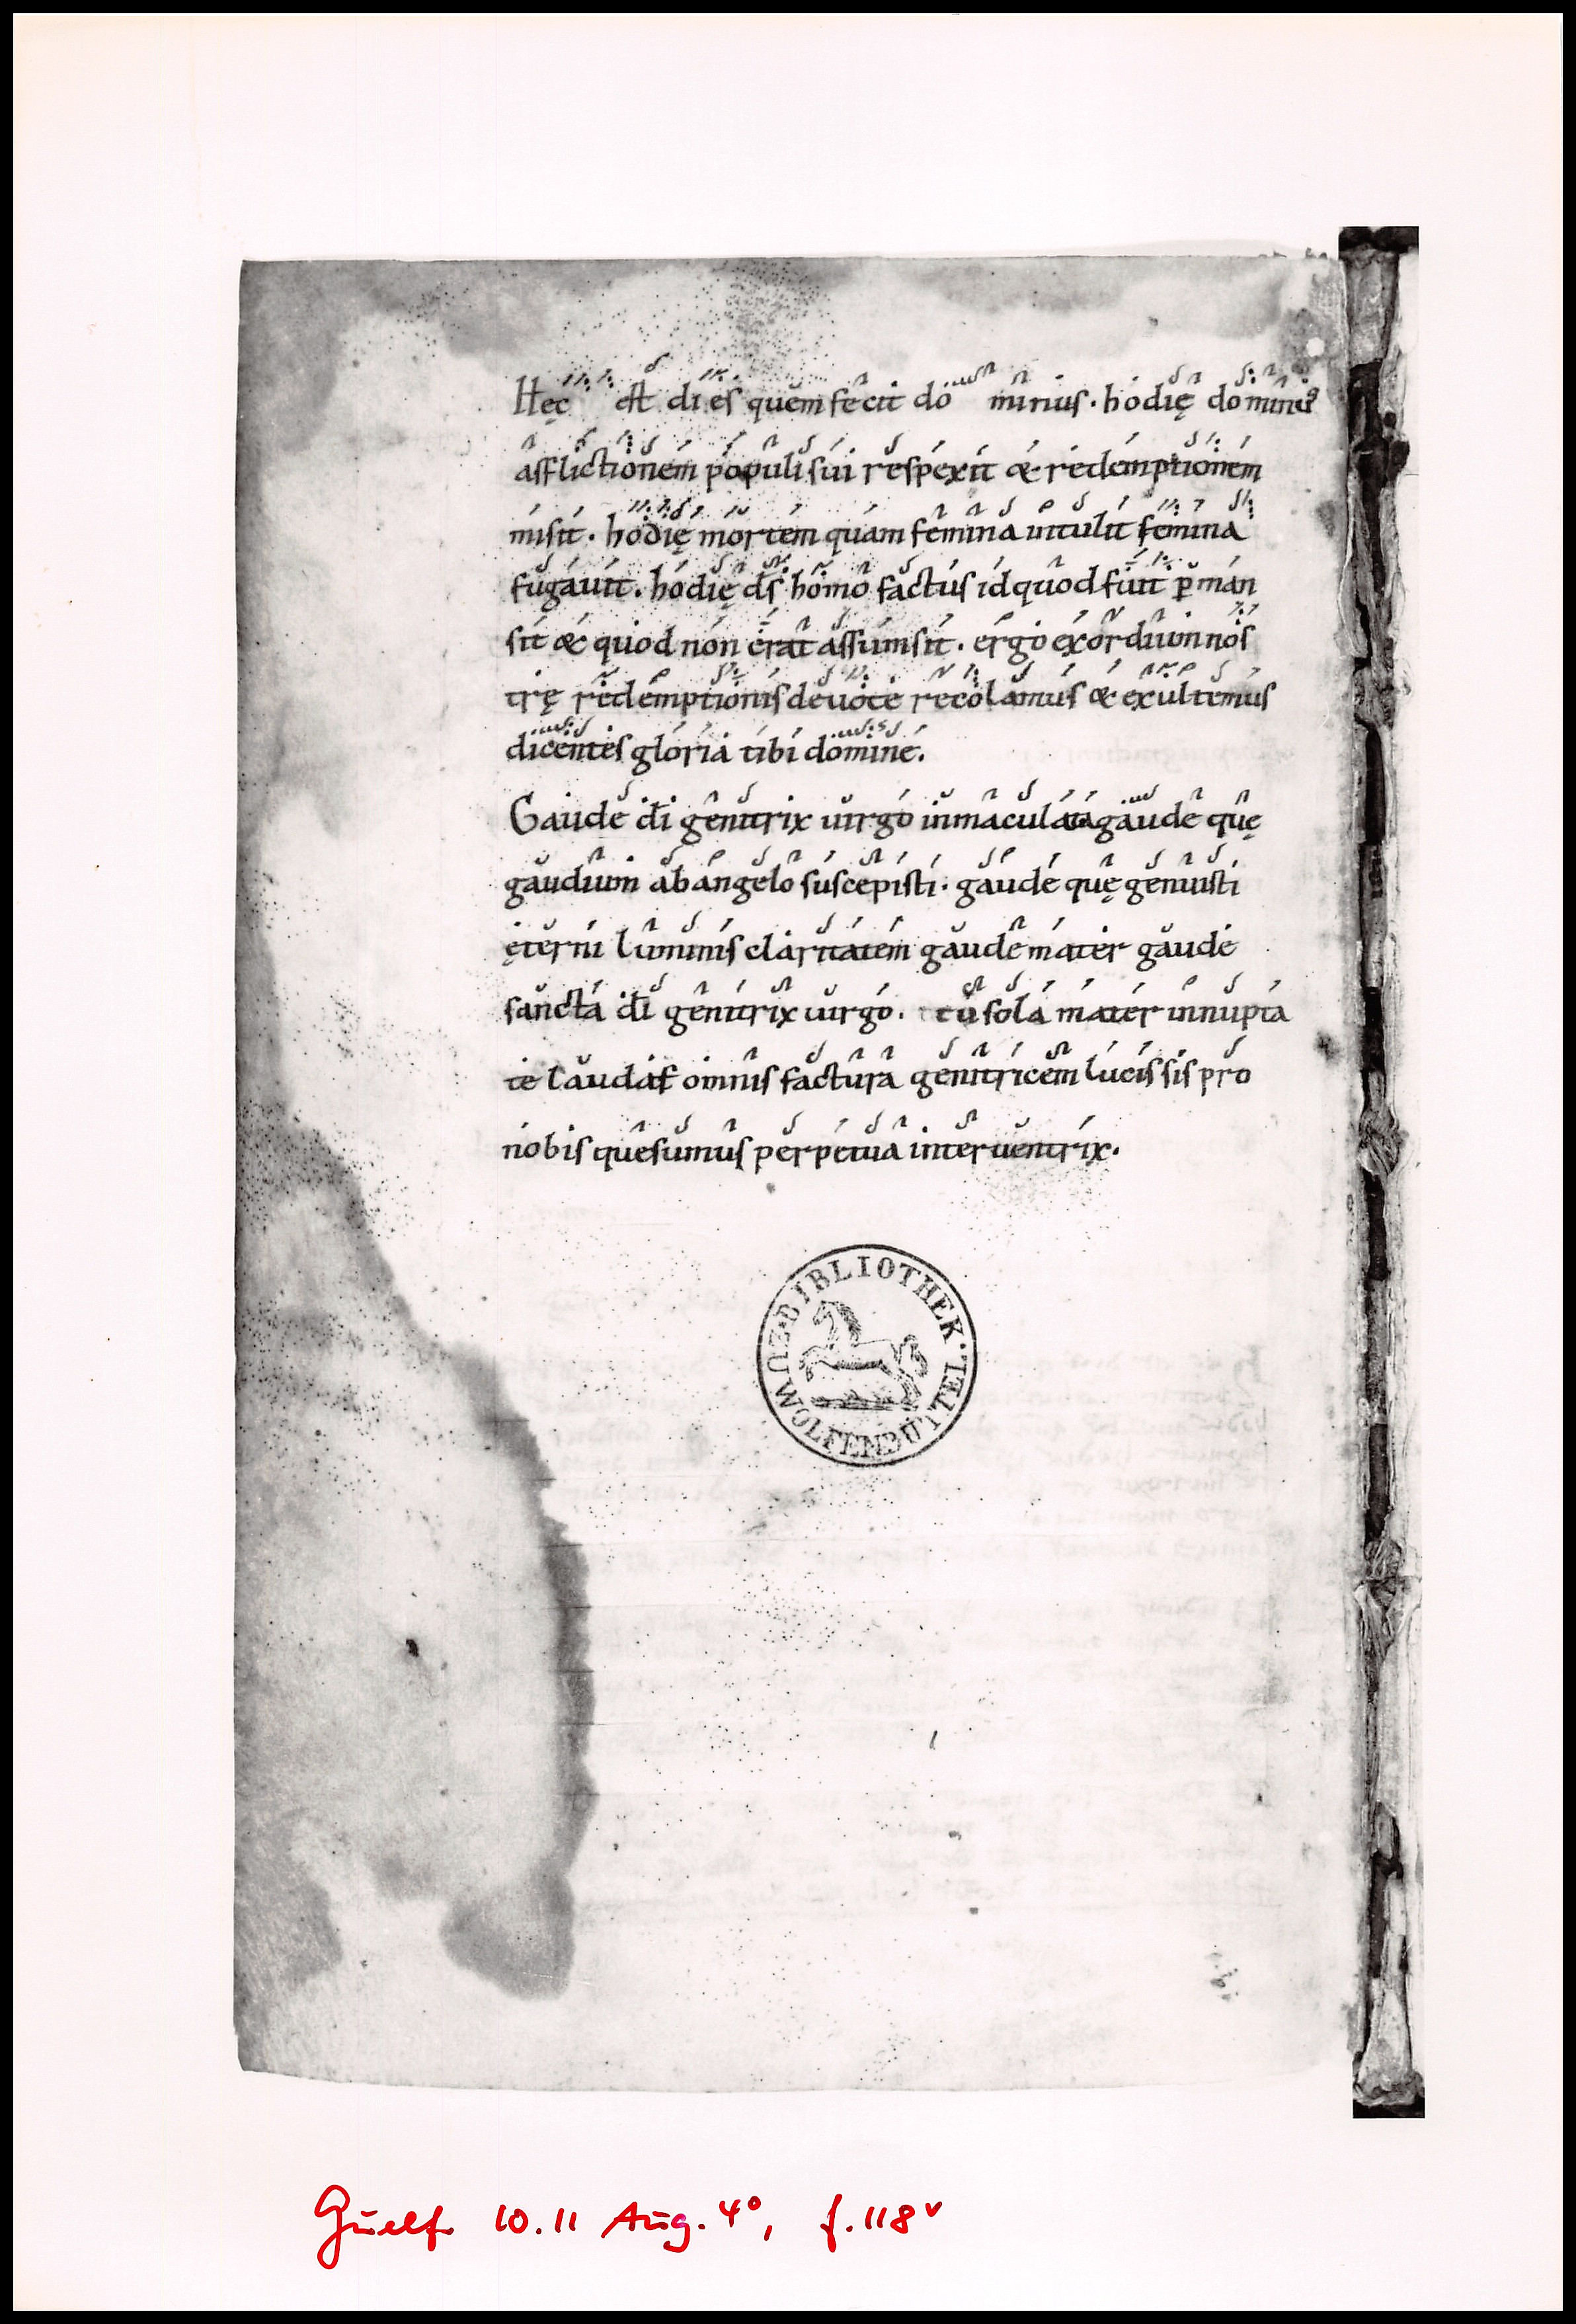 Hęc est di es quem fecit do minus · hodię dominus
afflictionem populi sui respexit & redemptionem
misit · hodię mortem quam femina intulit femina
fugauit · hodię ds̄ homo factus id quod fuit ꝑman
sit & quod non erat assumsit · ergo exordium nos
trę redemptionis deuote recolamus & exultemus
dicentes gloria tibi domine.
Gaude dī genitrix uirgo inmaculata gaude quę
gaudium ab angelo suscepisti · gaude quę genuisti
ęterni luminis claritatem gaude mater gaude
sancta dī genitrix uirgo · tu sola mater innupta
te laudat omnis factura genitricem lucis sis pro
nobis quesumus perpetua interuentrix.
BIBLIOTHEK · ZU WOLFENBÜTTEL ·
Guelf. 10.11 Aug. 4°, f. 118ᵛ